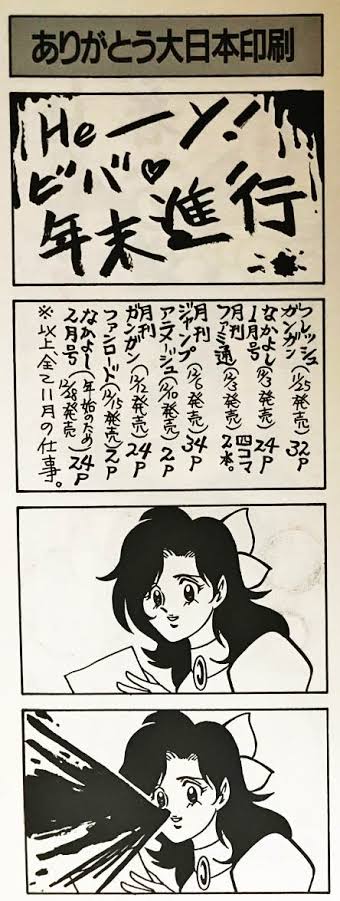 ありがとう大日本印刷
Heーソ!
ビバ♡
年末進行
フレッシュ
ガンガン(11/25発売)32P
なかよし
1月号(12/3発売)24P
月刊
ファミ通(12/3発売)四コマ2本。
月刊
ジャンプ(12/6発売)34P
アラメージュ(12/10発売)2P
月刊
ガンガン(12/12発売)24P
ファンロード(12/15発売)2P
なかよし(年始のため)
2月号(12/28発売)24P
※以上、全て11月の仕事。